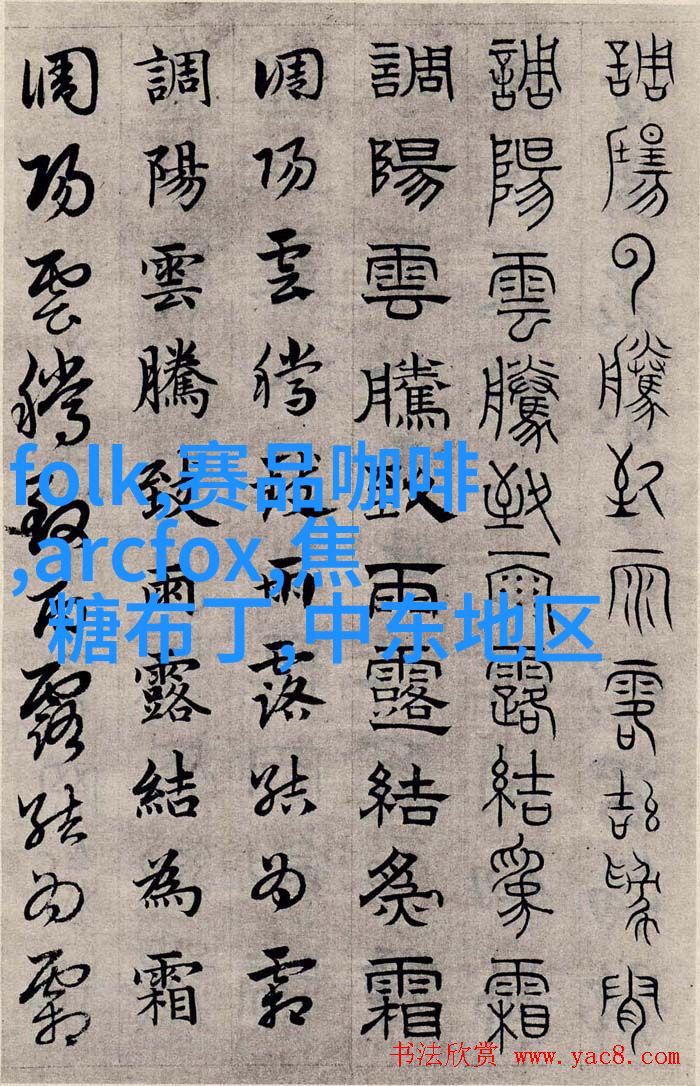 調陽雲騰致雨露結為霜
調陽雲騰致雨露結為霜
調陽雲騰致雨露結為霜
調陽雲騰致雨露結為霜
調陽雲騰致雨露結為霜
調陽雲騰致雨露結為霜
folk,赛品咖啡
,arcfox,焦
糖布丁,中东地区
书法欣赏 www.yac8.com